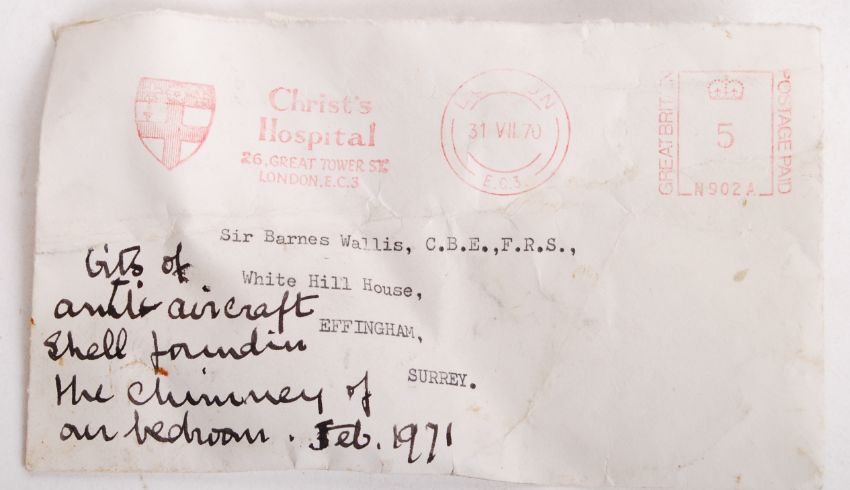 Christ's
Hospital
26, GREAT TOWER ST.
LONDON. E.C.3
LONDON
31 VII.70
E.C.3.
GREAT BRITAIN
5
N902A
POSTAGE PAID
Sir Barnes Wallis, C.B.E.,F.R.S.,
White Hill House,
EFFINGHAM,
SURREY.
bits of
anti-aircraft
shell found in
the chimney of
our bedroom. Feb. 1971